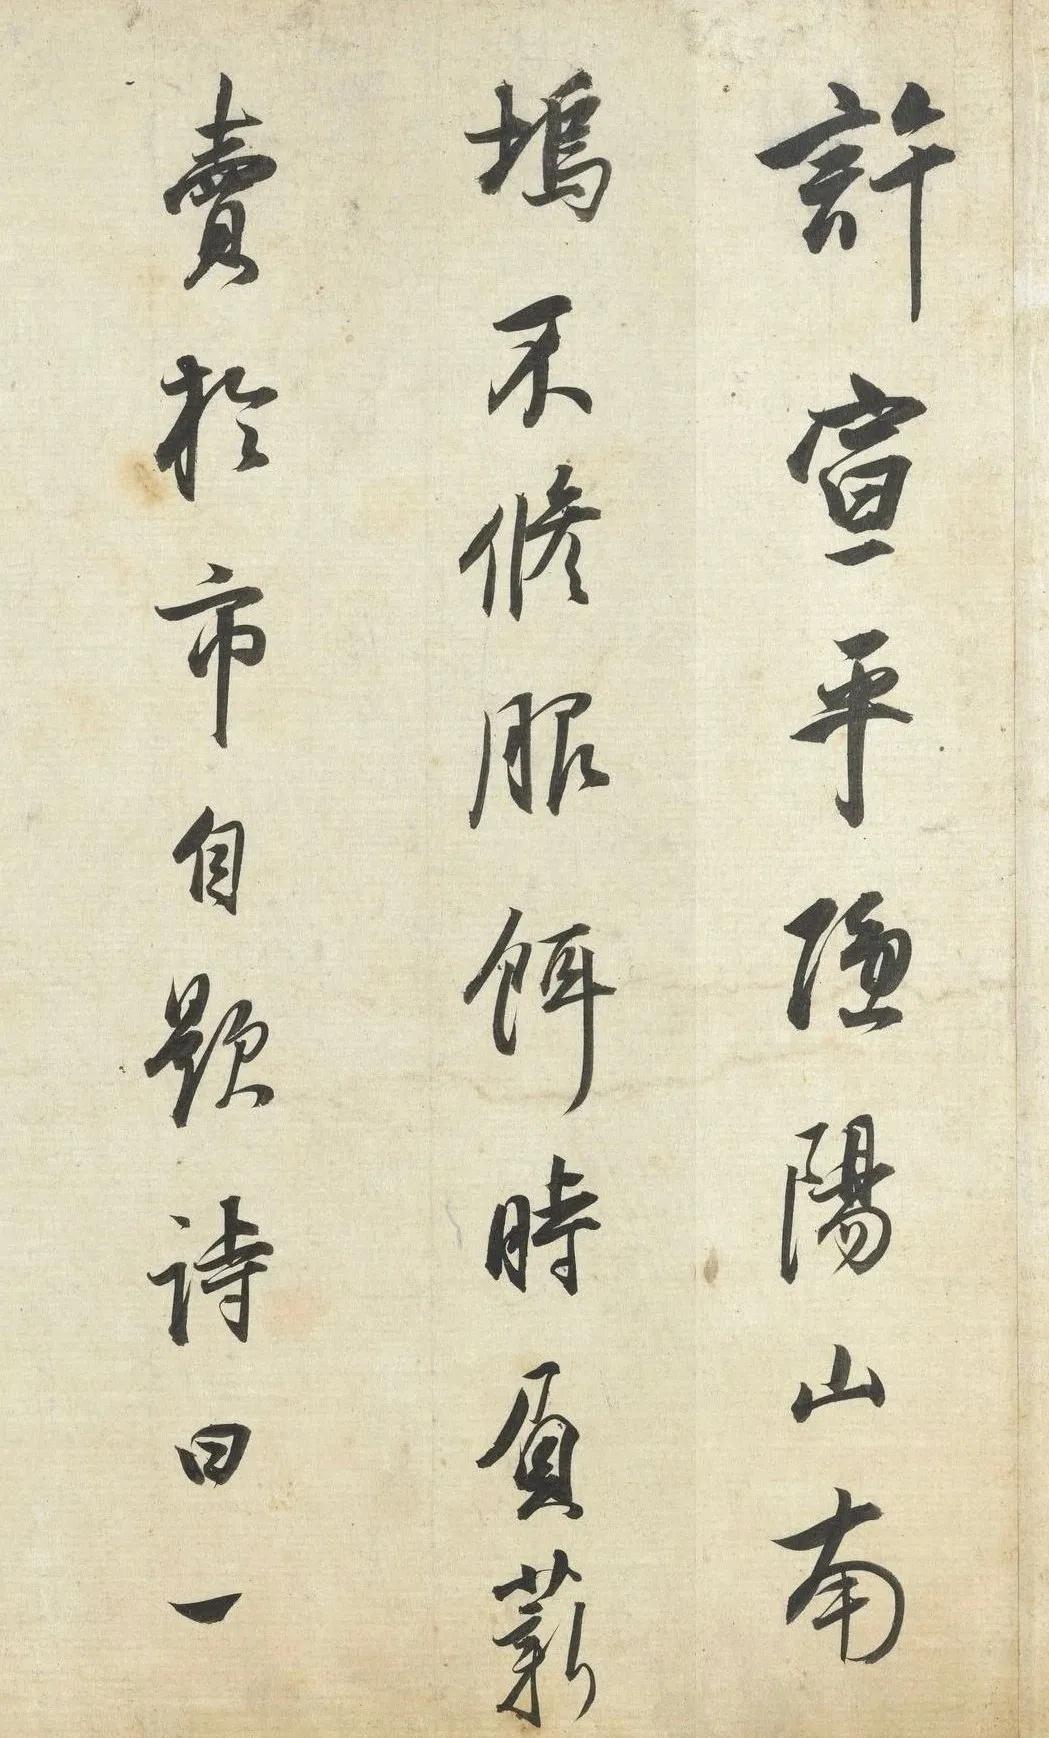 許宣平隱陽山南
塢不修服餌時負薪
賣於市自題詩曰一